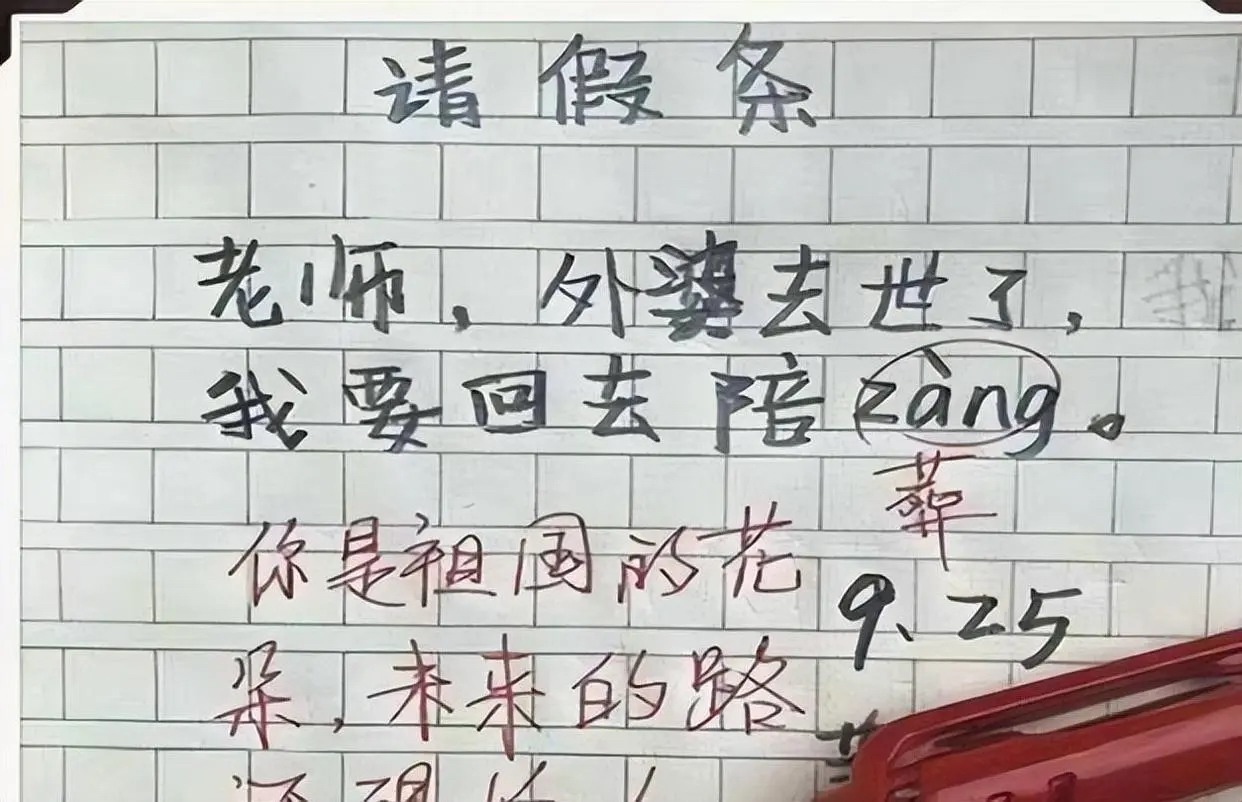 请假条
老师，外婆去世了，
我要回去陪zàng。
葬
你是祖国的花
9、25
朵，未来的路